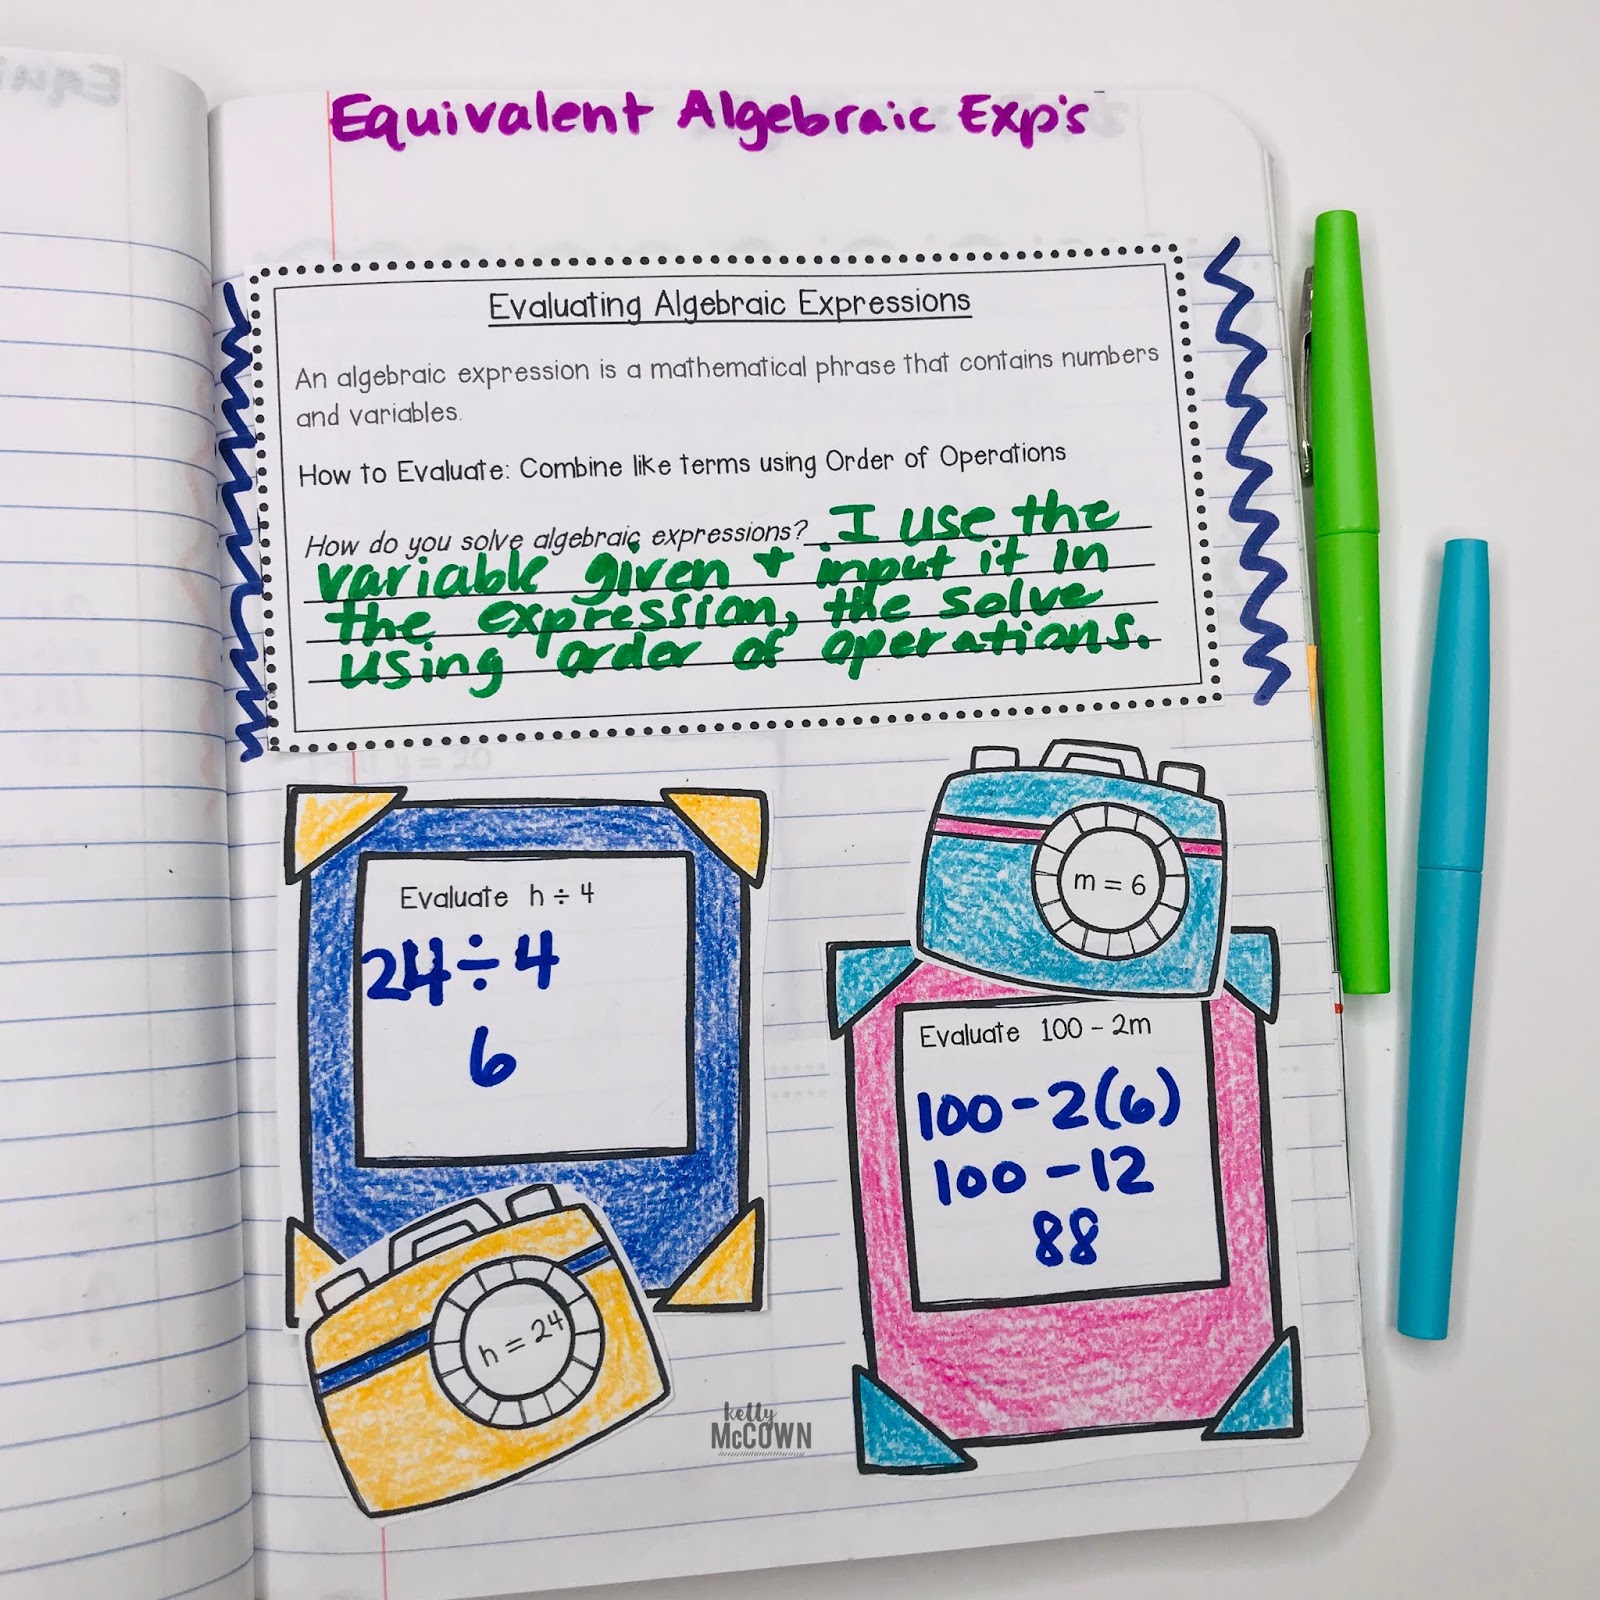 Equivalent Algebraic Exp's
Evaluating Algebraic Expressions
An algebraic expression is a mathematical phrase that contains numbers
and variables.
How to Evaluate: Combine like terms using Order of Operations
How do you solve algebraic expressions? I use the
variable given + input it in
the expression, the solve
using order of operations.
Evaluate h ÷ 4
24 ÷ 4
6
h = 24
m = 6
Evaluate 100 - 2m
100 - 2(6)
100 - 12
88
kelly
McCOWN